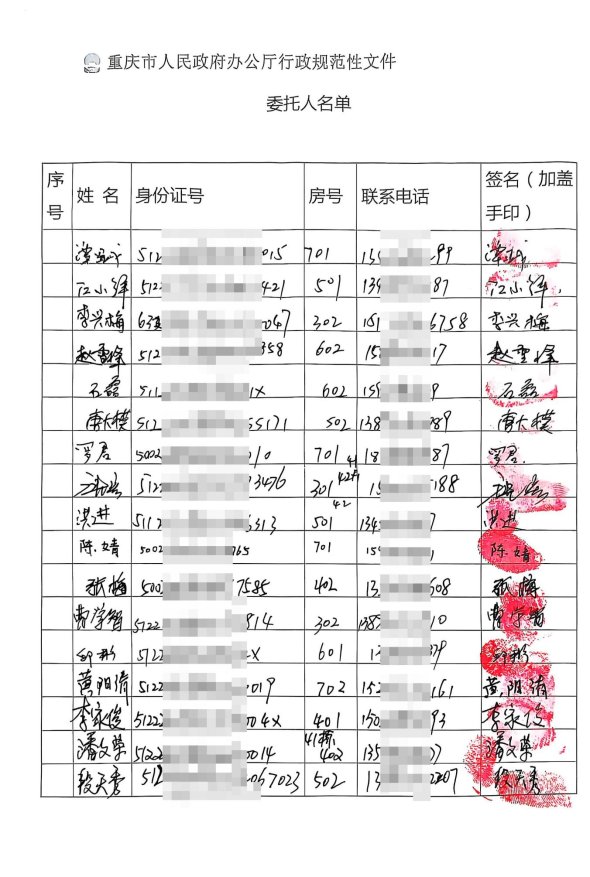 重庆市人民政府办公厅行政规范性文件
委托人名单
序号 姓 名 身份证号 房号 联系电话 签名（加盖手印）
512 015 701 135 99
江小祥 5122 421 501 134 87 江小祥
李兴梅 047 302 151 6758 李兴梅
赵雪峰 512 358 602 15 17 赵雪峰
石磊 511 X 602 159 9 石磊
唐大横 512 55171 502 138 989
罗君 5002 010 701 18 87 罗君
5122 13476 301 15 188
洪进 5112 6313 501 134 7 洪进
陈婧 5002 765 701 159 陈婧
张梅 500 7585 402 13 608 张梅
曹学智 5122 914 302 10 曹学智
邱彤 5122 X 601 1 39 邱彤
黄阳清 5122 019 702 152 161 黄阳清
李家俊 5122 04X 401 150 93 李家俊
潘文荣 5122 0014 41栋 402 135 07 潘文荣
段天秀 512 067023 502 13 2207 段天秀